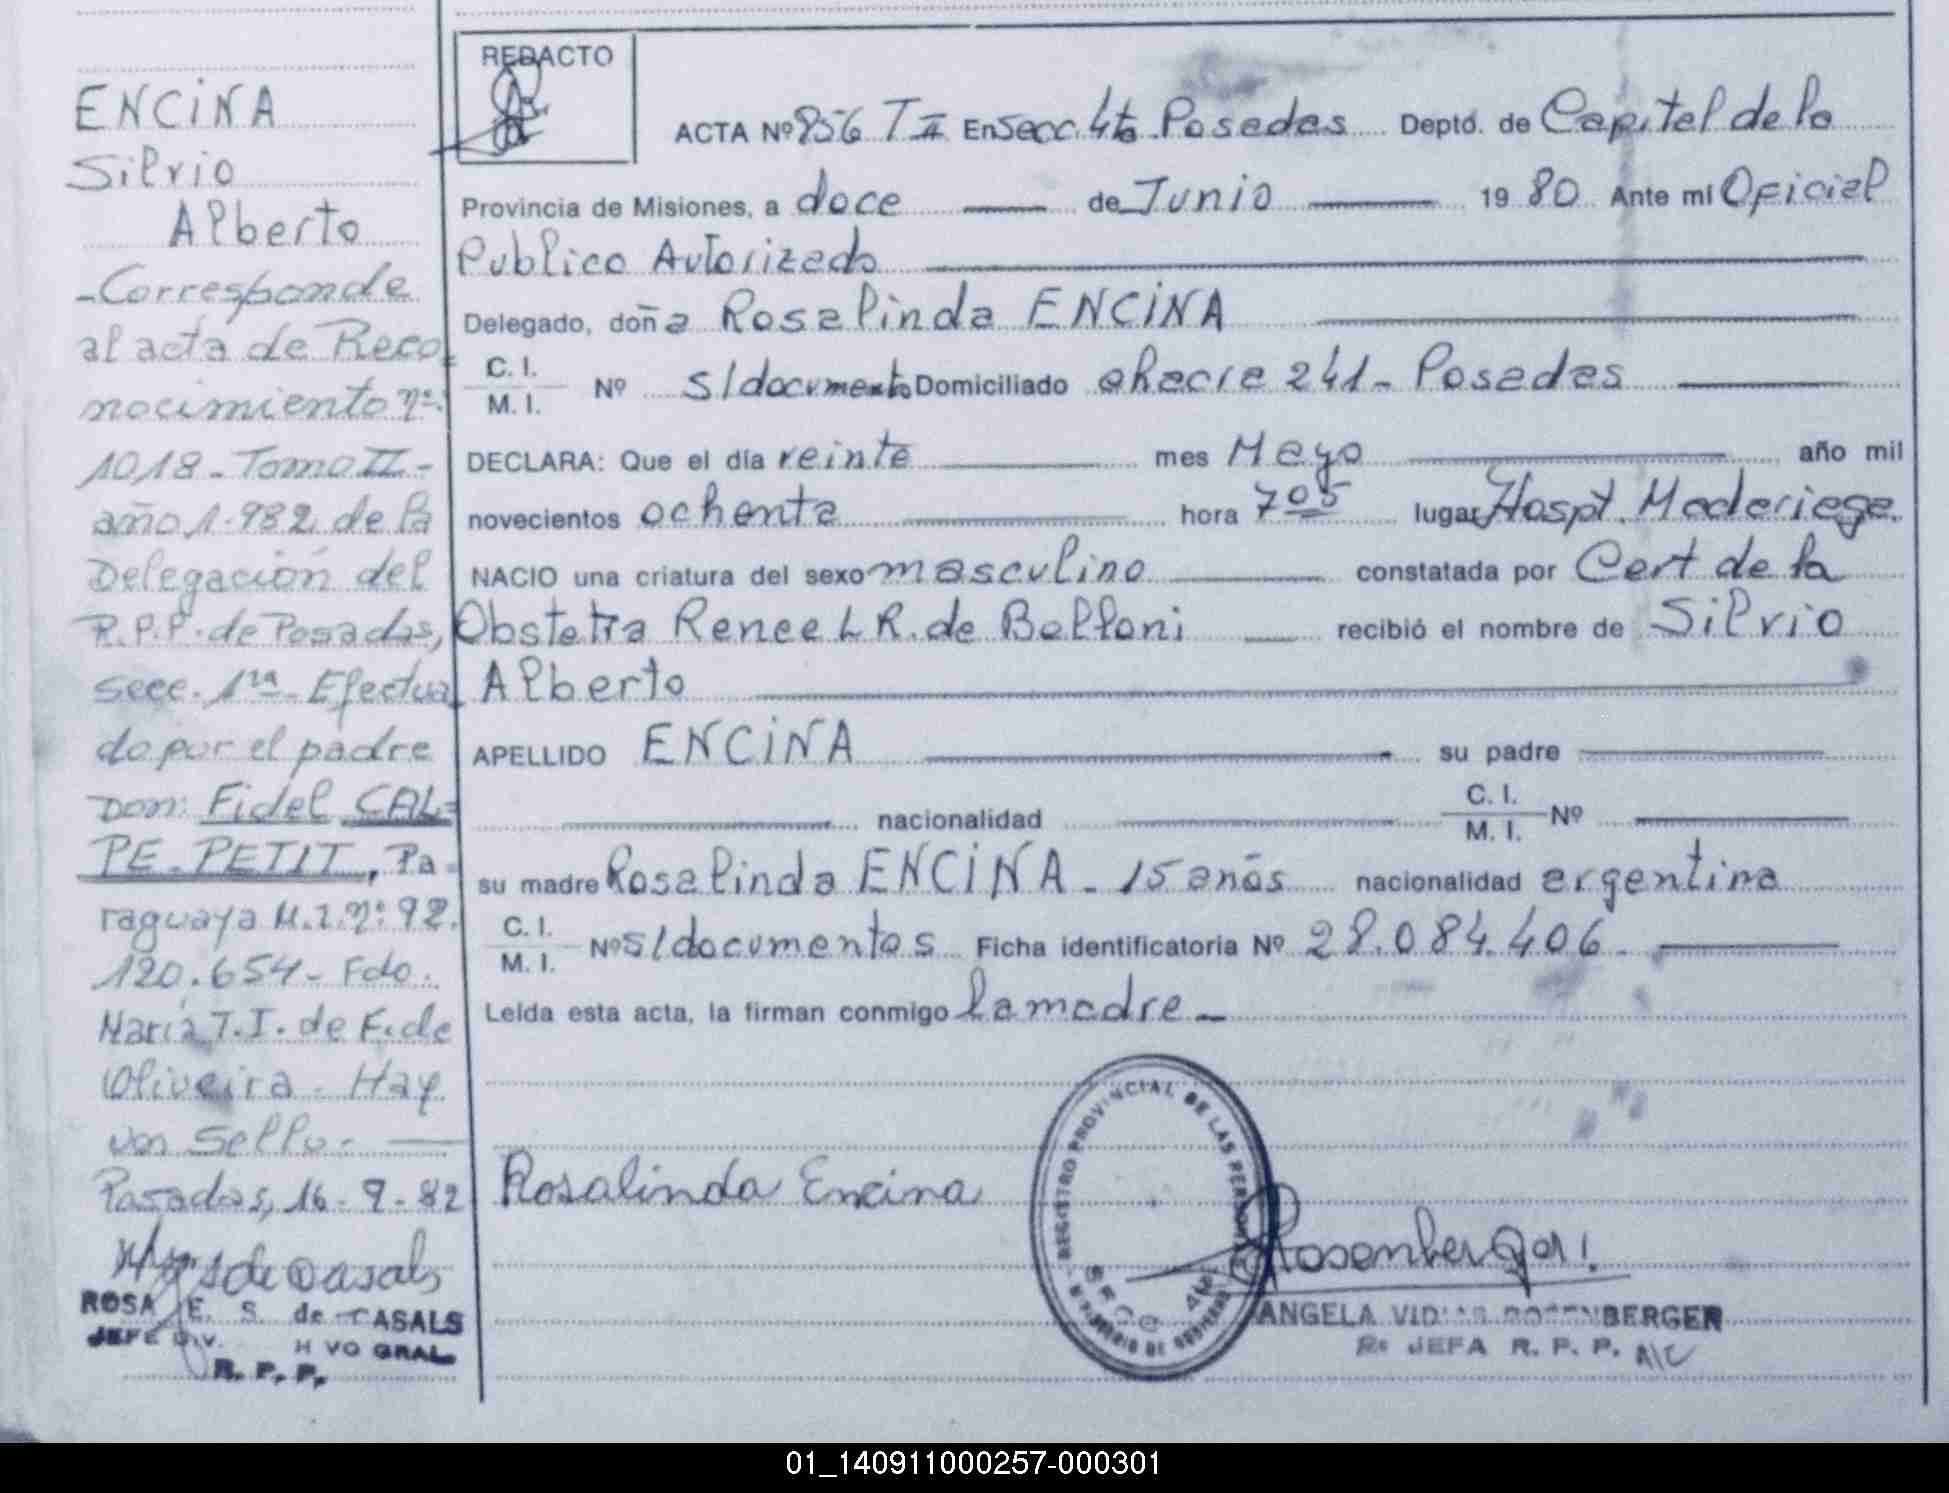 ENCINA
Silvio
Alberto
-Corresponde
al acta de Reco=
nocimiento nº:
1018-Tomo II-
año 1.982 de la
Delegación del
R.P.P. de Posadas,
secc. 1ra- Efectua
do por el padre
Don: Fidel CAL=
PE-PETIT, Pa=
raguaya M.I. nº: 92.
120.654- Fdo.
María T.I. de F. de
Oliveira- Hay
un Sello. —
Posadas, 16-9-82
de Casals
ROSA E. S. de CASALS
JEFE DIV. H VO GRAL.
R. P. P.
REDACTO
ACTA Nº 856 T II En Secc. 4ta Posadas Deptó. de Capital de la
Provincia de Misiones, a doce — de Junio — 19 80 Ante mí Oficial
Publico Autorizado
Delegado, doña Rosalinda ENCINA
C. I.
M. I. Nº s/documento Domiciliado chacra 241- Posadas
DECLARA: Que el día veinte — mes Mayo — año mil
novecientos ochenta — hora 7 05 lugar Hospt. Madariaga.
NACIO una criatura del sexo masculino — constatada por Cert de la
Obstetra Renee L R. de Belloni — recibió el nombre de Silvio
Alberto
APELLIDO ENCINA — su padre —
— nacionalidad — C. I.
M. I. Nº —
su madre Rosalinda ENCINA - 15 años nacionalidad argentina
C. I.
M. I. Nº s/documentos Ficha identificatoria Nº 28.084.406 —
Leída esta acta, la firman conmigo la madre -
REGISTRO PROVINCIAL DE LAS PERSONAS
SECC 4ta
Rosalinda Encina
Rosenberger
ANGELA VIDAS ROSENBERGER
JEFA R. P. P. A/C
01_140911000257-000301